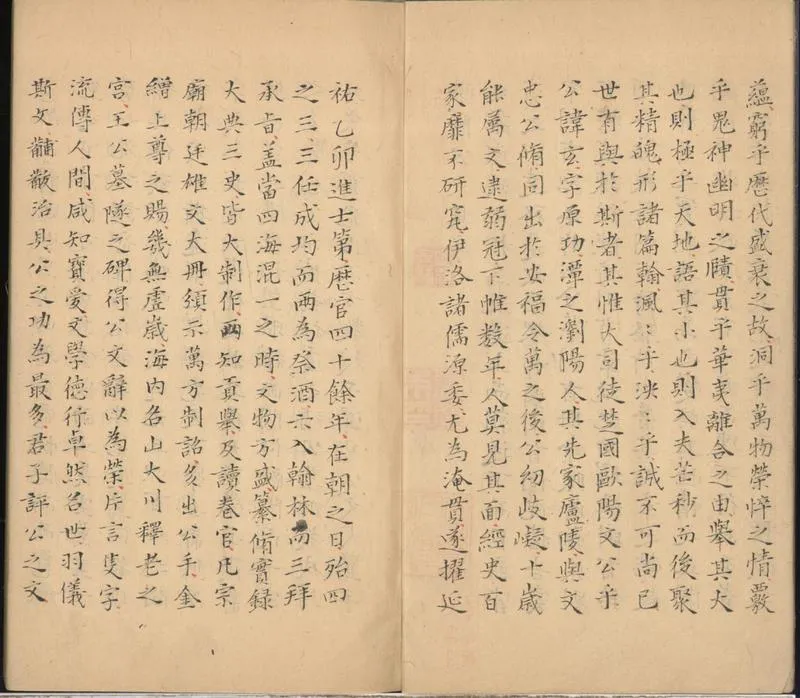 蘊窮乎歷代盛衰之故洞乎萬物榮悴之情覈
乎鬼神幽明之賾貫乎華夷離合之由舉其大
也則極乎天地語其小也則入夫芒秒而後聚
其精魄形諸篇翰渢:乎泱:乎誠不可尚已
世有與於斯者其惟大司徒楚國歐陽文公乎
公諱玄字原功潭之瀏陽人其先家廬陵與文
忠公脩同出於安福令萬之後公幼歧嶷十歲
能属文逮弱冠下帷数年人莫見其面經史百
家靡不研究伊洛諸儒源委尤為淹貫遂擢延
祐乙卯進士第歷官四十餘年在朝之日殆四
之三三任成均而兩為祭酒六入翰林而三拜
承旨盖當四海混一之時文物方盛纂脩實録
大典三史皆大制作兩知貢舉及讀卷官凡宗
廟朝廷雄文大冊頒示萬方制詔多出公手金
繒上尊之賜幾無虛歲海内名山大川釋老之
宮王公墓隧之碑得公文辭以為榮片言隻字
流傳人間咸知寶愛文學德行卓然名世羽儀
斯文黼黻治具公之功為最多君子評公之文